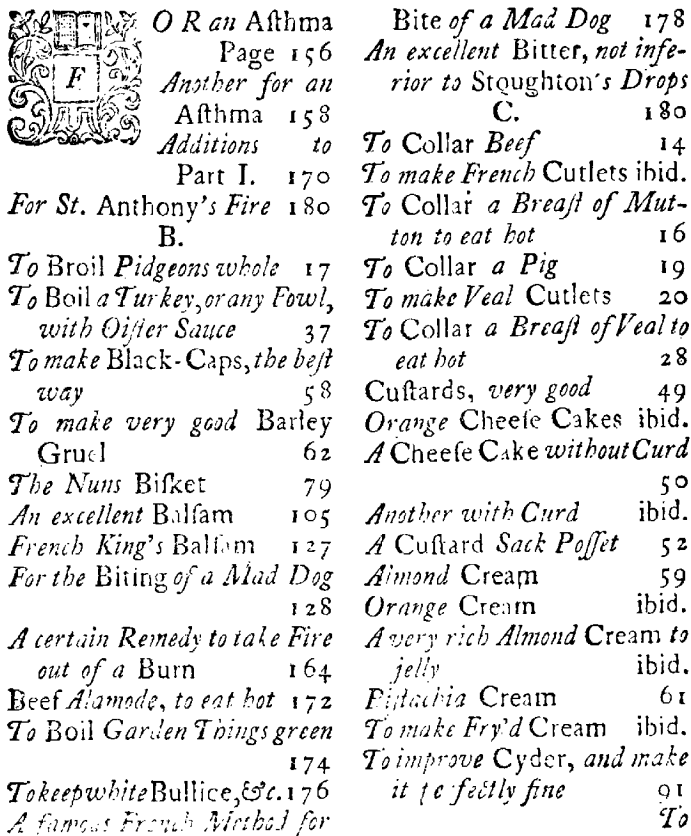 FOR an Aſthma
Page 156
Another for an
Aſthma 158
Additions to
Part I. 170
For St. Anthony's Fire 180
B.
To Broil Pidgeons whole 17
To Boil a Turkey, or any Fowl,
with Oiſter Sauce 37
To make Black-Caps, the beſt
way 58
To make very good Barley
Gruel 62
The Nuns Biſket 79
An excellent Balſam 105
French King's Balſam 127
For the Biting of a Mad Dog
128
A certain Remedy to take Fire
out of a Burn 164
Beef Alamode, to eat hot 172
To Boil Garden Things green
174
To keep white Bullice, &c. 176
A famous French Method for
Bite of a Mad Dog 178
An excellent Bitter, not infe-
rior to Stoughton's Drops
C. 180
To Collar Beef 14
To make French Cutlets ibid.
To Collar a Breaſt of Mut-
ton to eat hot 16
To Collar a Pig 19
To make Veal Cutlets 20
To Collar a Breaſt of Veal to
eat hot 28
Cuſtards, very good 49
Orange Cheeſe Cakes ibid.
A Cheeſe Cake without Curd
50
Another with Curd ibid.
A Cuſtard Sack Poſſet 52
Almond Cream 59
Orange Cream ibid.
A very rich Almond Cream to
jelly ibid.
Piſtachia Cream 61
To make Fry'd Cream ibid.
To improve Cyder, and make
it perfectly fine 91
To